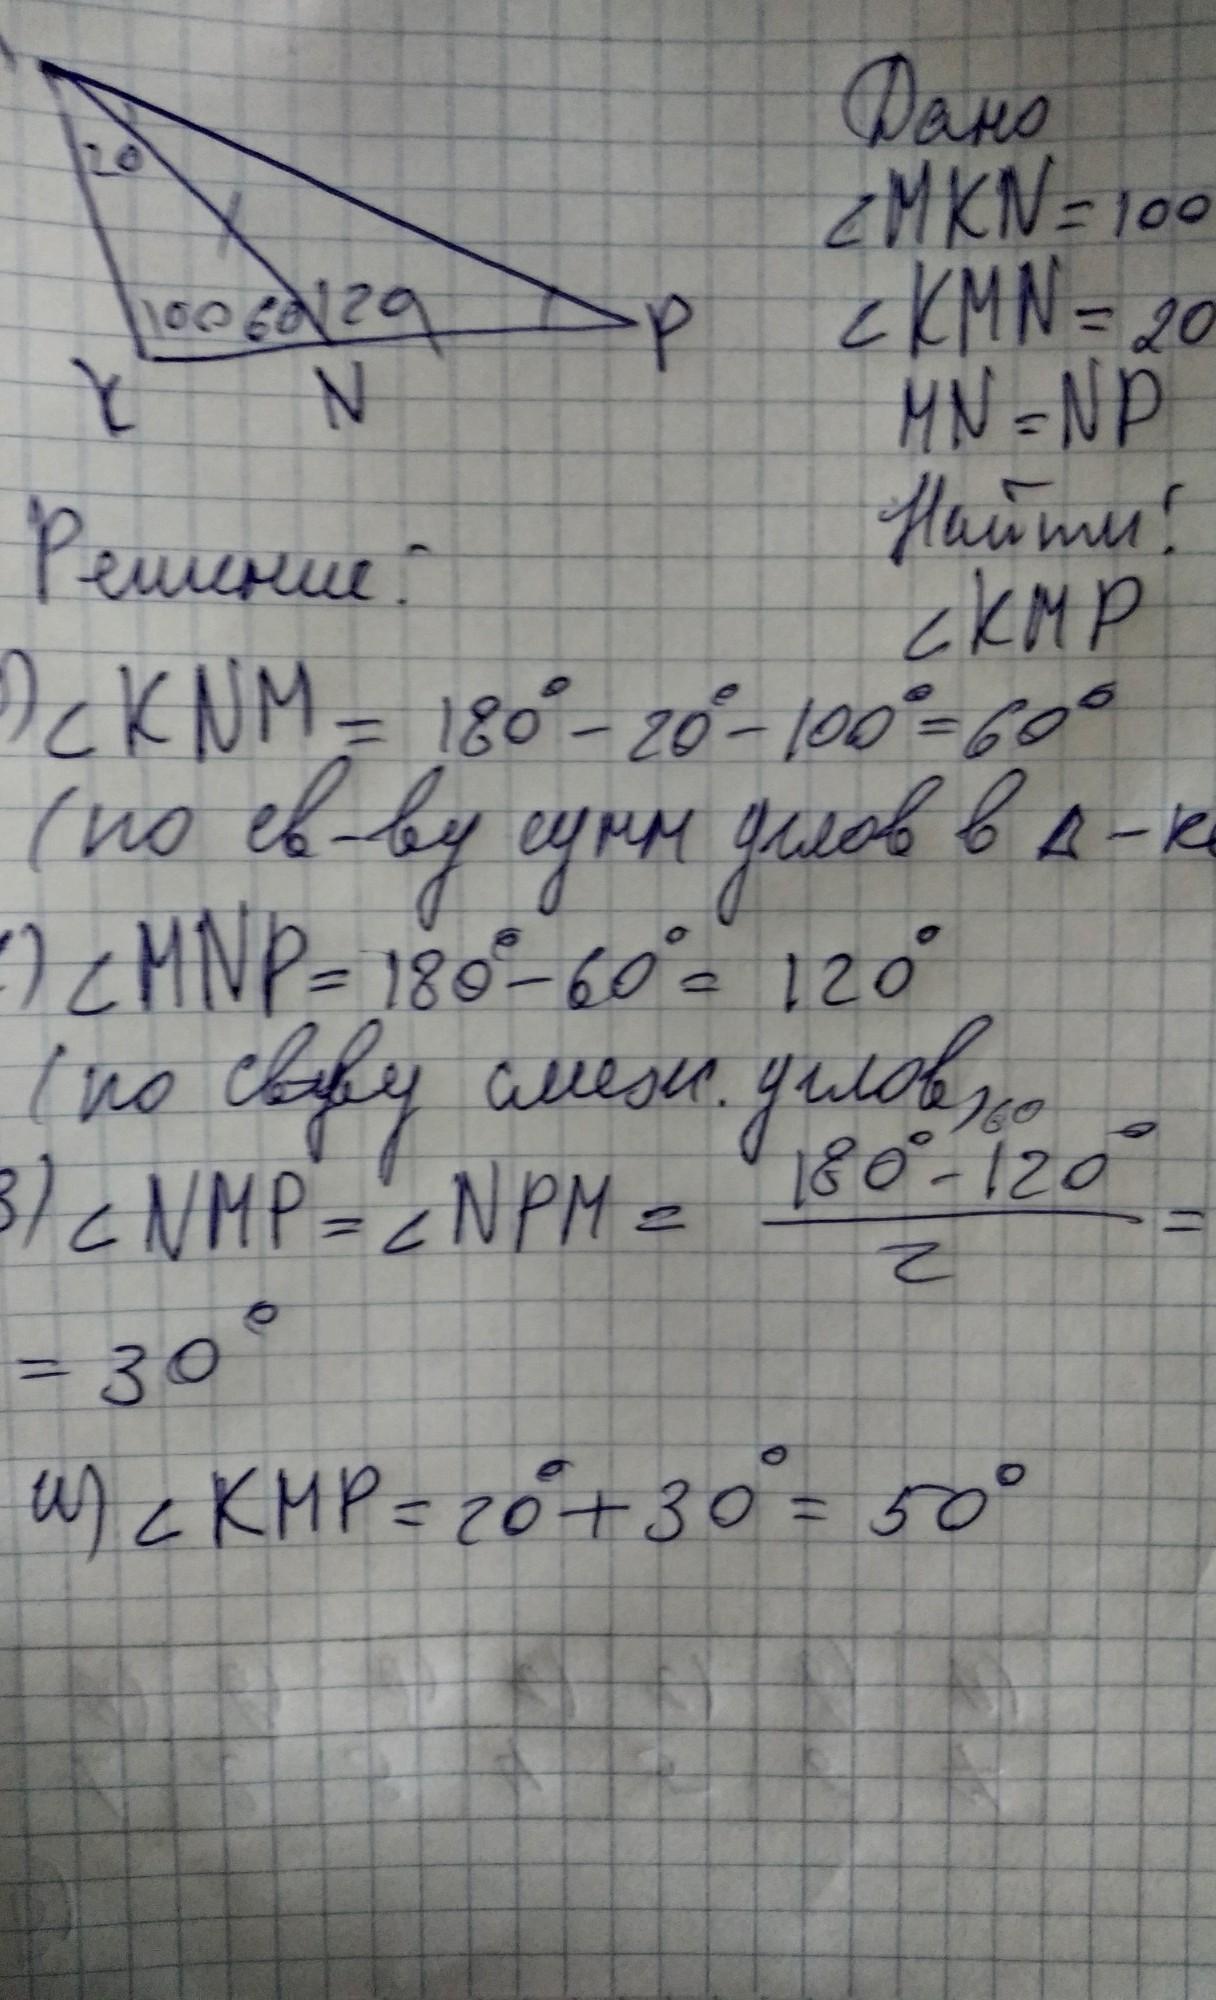 20
100 60 120
K N P
Дано
∠MKN=100
∠KMN=20
MN=NP
Найти:
∠KMP
Решение:
1) ∠KNM = 180°-20°-100°=60°
(по св-ву сумм углов в Δ-ке
2) ∠MNP=180°-60°= 120°
(по св-ву смеж. углов)
60
3) ∠NMP=∠NPM = 180°-120° / 2 =
= 30°
4) ∠KMP=20°+30°= 50°